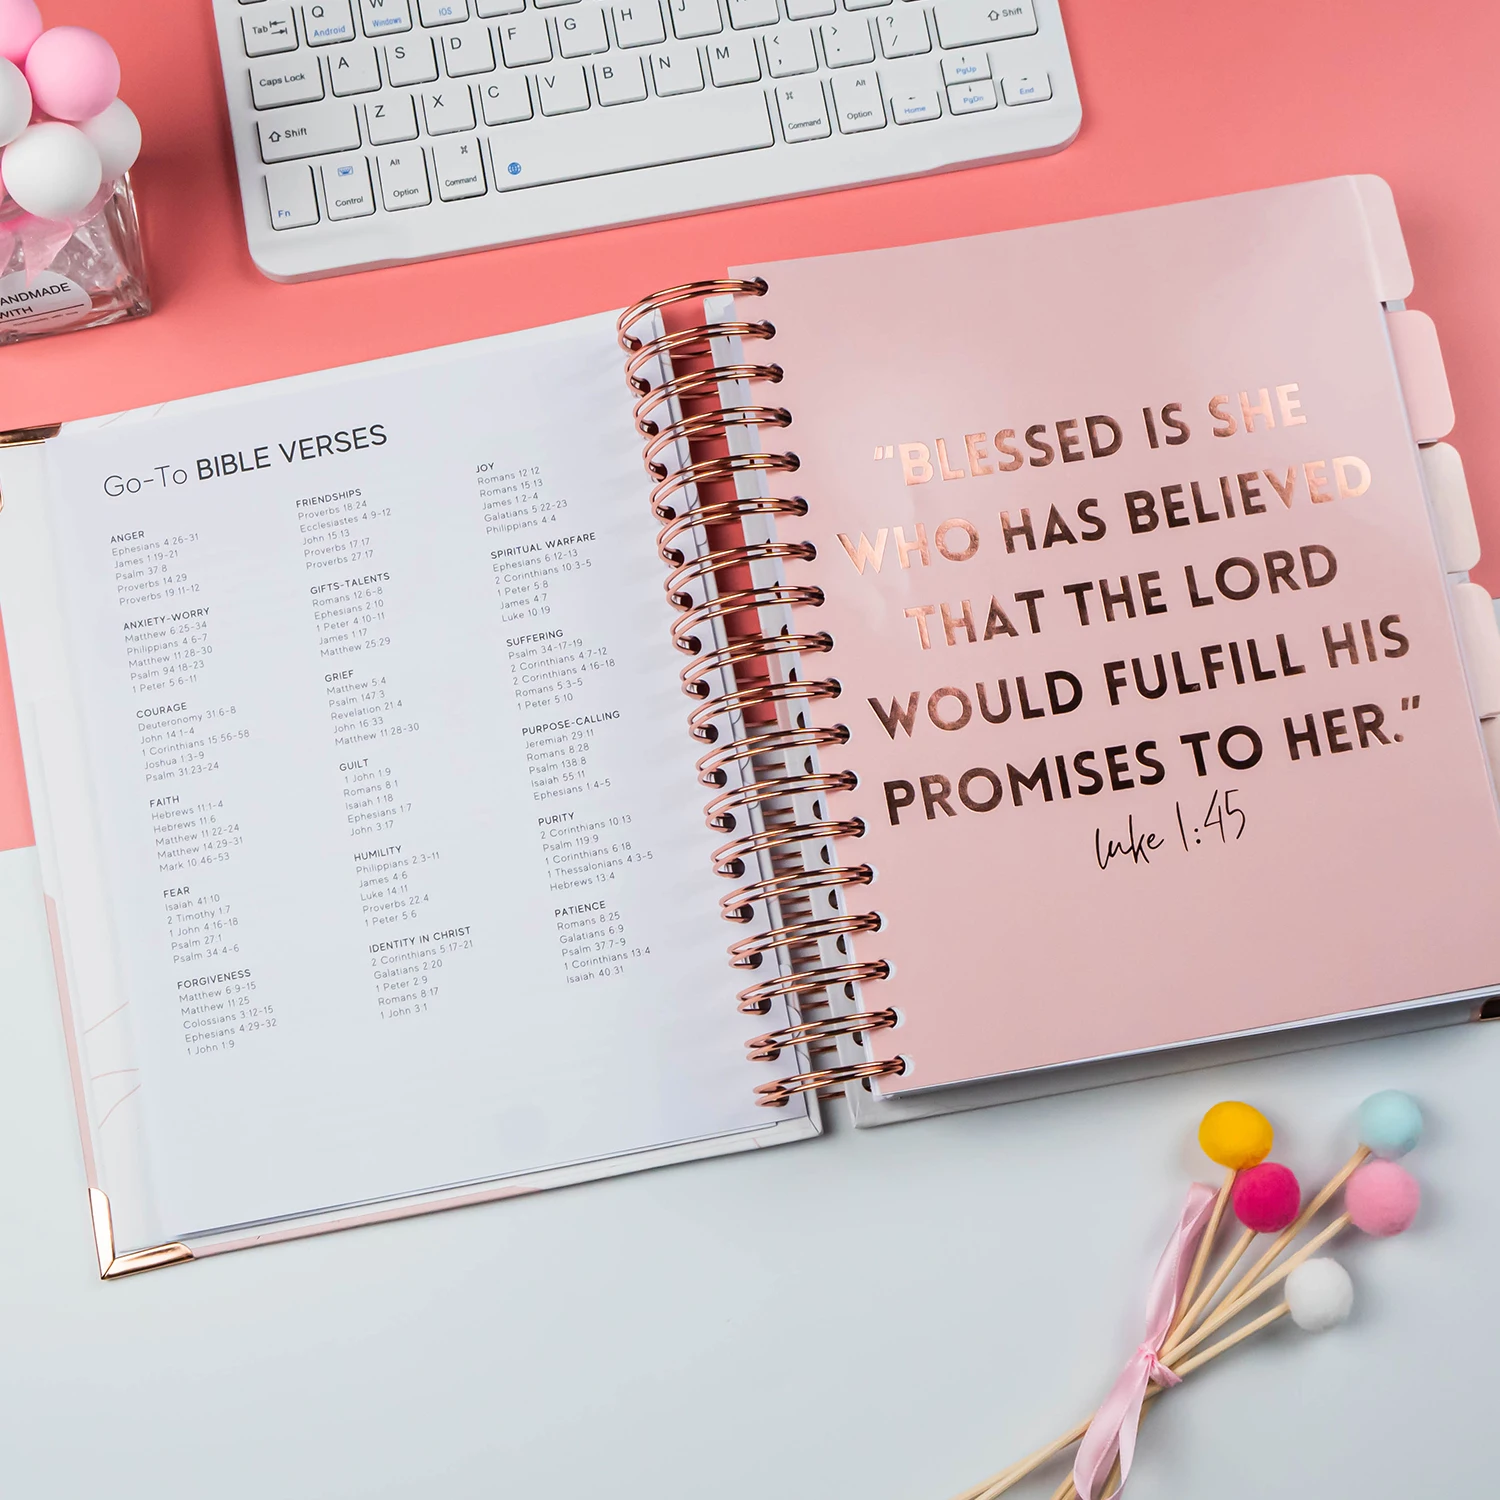 Tab
Q
Android
W
Windows
IOS
Shift
Caps Lock
A
S
D
F
G
H
J
<
,
>
.
?
/
Shift
Z
X
C
V
B
N
M
PgUp
Fn
Control
Alt
Option
⌘
Command
⌘
Command
Alt
Option
Home
PgDn
End
ANDMADE
WITH
Go-To BIBLE VERSES
ANGER
Ephesians 4:26-31
James 1:19-21
Psalm 37:8
Proverbs 14:29
Proverbs 19:11-12
ANXIETY-WORRY
Matthew 6:25-34
Philippians 4:6-7
Matthew 11:28-30
Psalm 94:18-23
1 Peter 5:6-11
COURAGE
Deuteronomy 31:6-8
John 14:1-4
1 Corinthians 15:56-58
Joshua 1:3-9
Psalm 31:23-24
FAITH
Hebrews 11:1-4
Hebrews 11:6
Matthew 11:22-24
Matthew 14:29-31
Mark 10:46-53
FEAR
Isaiah 41:10
2 Timothy 1:7
1 John 4:16-18
Psalm 27:1
Psalm 34:4-6
FORGIVENESS
Matthew 6:9-15
Matthew 11:25
Colossians 3:12-15
Ephesians 4:29-32
1 John 1:9
FRIENDSHIPS
Proverbs 18:24
Ecclesiastes 4:9-12
John 15:13
Proverbs 17:17
Proverbs 27:17
GIFTS-TALENTS
Romans 12:6-8
Ephesians 2:10
1 Peter 4:10-11
James 1:17
Matthew 25:29
GRIEF
Matthew 5:4
Psalm 147:3
Revelation 21:4
John 16:33
Matthew 11:28-30
GUILT
1 John 1:9
Romans 8:1
Isaiah 1:18
Ephesians 1:7
John 3:17
HUMILITY
Philippians 2:3-11
James 4:6
Luke 14:11
Proverbs 22:4
1 Peter 5:6
IDENTITY IN CHRIST
2 Corinthians 5:17-21
Galatians 2:20
1 Peter 2:9
Romans 8:17
1 John 3:1
JOY
Romans 12:12
Romans 15:13
James 1:2-4
Galatians 5:22-23
Philippians 4:4
SPIRITUAL WARFARE
Ephesians 6:12-13
2 Corinthians 10:3-5
1 Peter 5:8
James 4:7
Luke 10:19
SUFFERING
Psalm 34-17-19
2 Corinthians 4:7-12
2 Corinthians 4:16-18
Romans 5:3-5
1 Peter 5:10
PURPOSE-CALLING
Jeremiah 29:11
Romans 8:28
Psalm 138:8
Isaiah 55:11
Ephesians 1:4-5
PURITY
2 Corinthians 10:13
Psalm 119:9
1 Corinthians 6:18
1 Thessalonians 4:3-5
Hebrews 13:4
PATIENCE
Romans 8:25
Galatians 6:9
Psalm 37:7-9
1 Corinthians 13:4
Isaiah 40:31
"BLESSED IS SHE
WHO HAS BELIEVED
THAT THE LORD
WOULD FULFILL HIS
PROMISES TO HER."
Luke 1:45